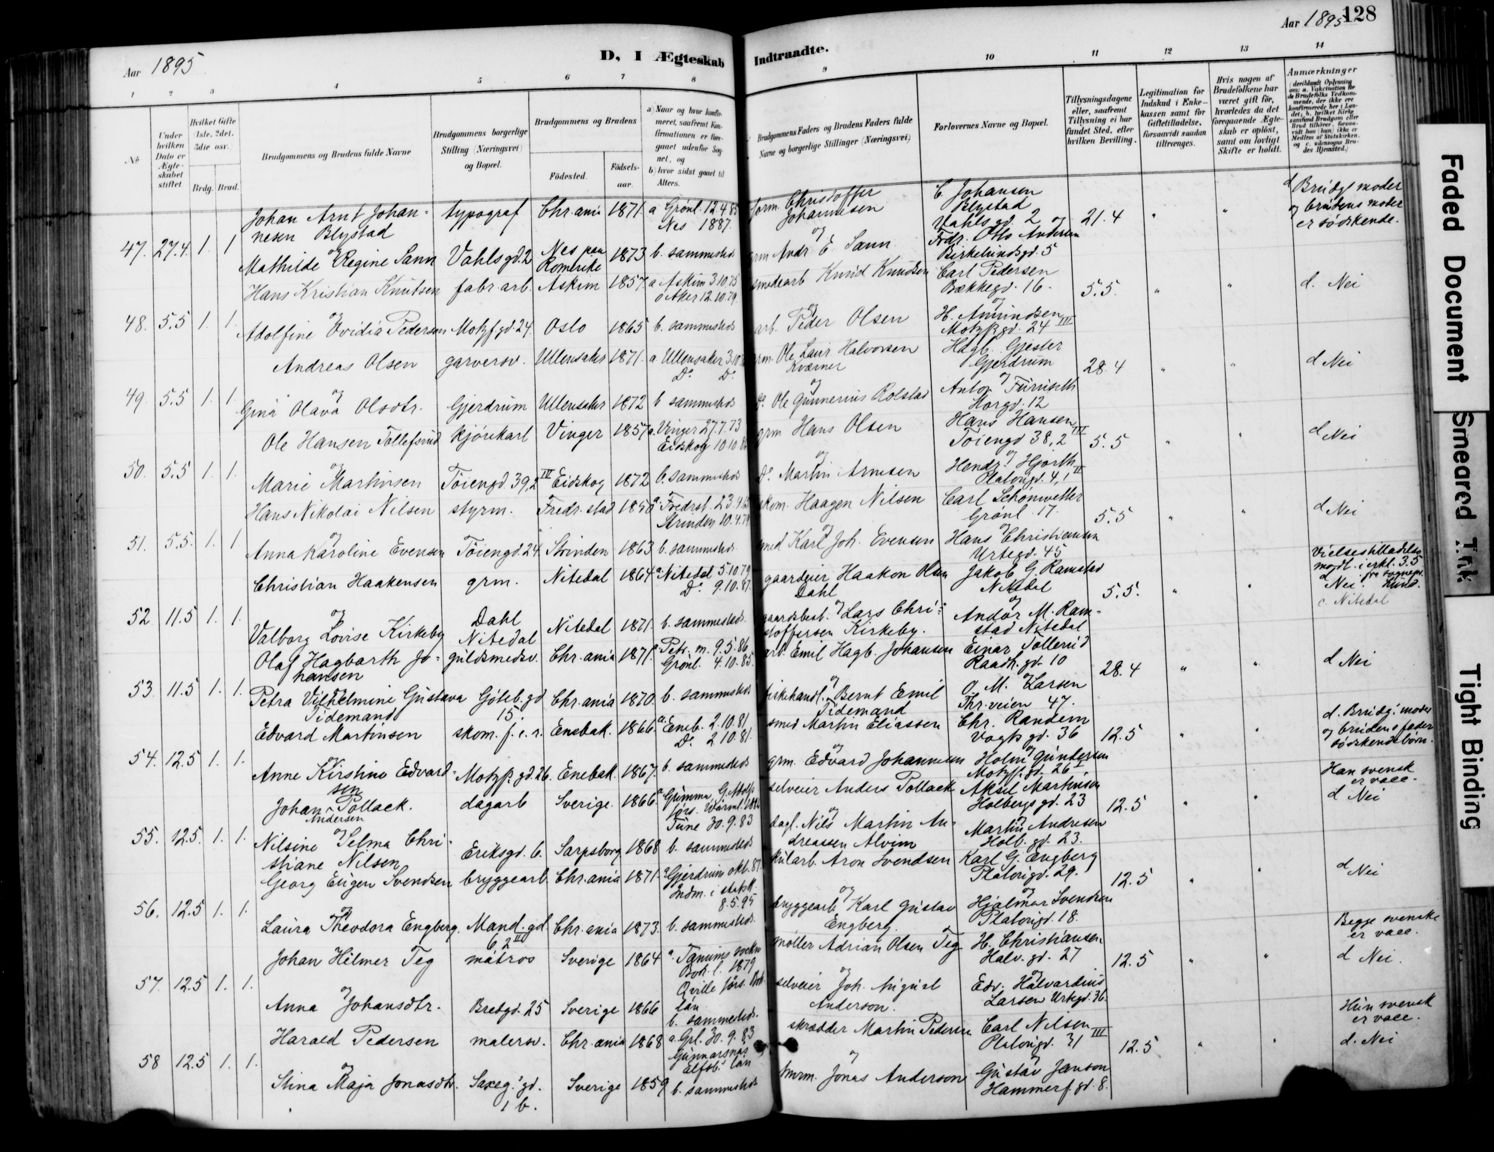 Aar 1895
D, I Ægteskab Indtraadte.
Aar 1895
128
1 2 3 4 5 6 7 8 9 10 11 12 13 14
No
Under hvilken Dato er Ægteskabet stiftet
Hvilket Gifte 1ste, 2det, 3die osv.
Brdg. Brud.
Brudgommens og Brudens fulde Navne
Brudgommens borgerlige Stilling (Næringsvei) og Bopæl.
Brudgommens og Brudens
Fødested.
Fødselsaar.
Brudgommens Faders og Brudens Faders fulde Navne og borgerlige Stillinger (Næringsvei)
Forlovernes Navne og Bopæl.
Tillysningsdagene eller, saafremt Tillysning ei har fundet Sted, efter hvilken Bevilling.
Legitimation for Indskud i Enkekassen samt for Giftetilladelse, forsaavidt saadan tiltrænges.
Hvis nogen af Brudefolkene har været gift før, hvorledes da det foregaaende Ægteskab er opløst, samt om lovligt Skifte er holdt.
Anmærkninger
47. 27.4. 1. 1
Johan Arnt Johannesen Blystad typograf Chr.ania 1871 a Grönl. 12.4.85 Nes 1887. form. Christoffer Johannesen C. Johansen Blystad Vahls gd. 2 21.4 d Brudg. moder og brudens moder er södskende.
og
Mathilde Regine Sann Vahls gd. 2 Nes paa Romerike 1873 b. sammesteds Andr. E. Sann Fredr. Otto Andersen Birkelunds gd. 5
48. 5.5 1. 1.
Hans Kristian Knutsen fabr. arb. Askim 1857 a Askim 3.10.75 Aker 12.10.79 smedearb Knud Knudsen Carl Pedersen Bækkegd. 16. 5.5. d. Nei
og
Adolfine Ovidia Pedersen Motzfgd. 24. Oslo 1865 b. sammesteds arb. Peder Olsen H. Amundsen Motzf. gd. 24 III
49. 5.5 1. 1
Andreas Olsen garversv. Ullensaker 1871 a Ullensaker Do Do grm. Ole Laur Halvorsen Kværner Hagb. Gjester Gjerdrum 28.4 d Nei
og
Gina Olava Olsdtr. Gjerdrum Ullensaker 1872 b sammesteds Do Ole Gunnerius Rolstad Anton Furuseth Storgd. 12
50. 5.5 1. 1.
Ole Hansen Tollefsrud kjörekarl Vinger 1857 a. Vinger 27.7.73 Eidskog 10.10. grm Hans Olsen Hans Hansen Töiengd 38,2 III 5.5 d Nei
og
Marie Martinsen Töiengd 39,2 IV Eidskog 1872 b sammesteds Do Martin Arnesen Hendr. Hjorth Platougd. 4,1
51. 5.5. 1. 1
Hans Nikolai Nilsen styrm. Fredr.stad Fredrst. 23.4. Strinden 10.4.79 skom. Haagen Nilsen Carl Schönwetter Grönl. 17. 5.5 d Nei
og
Anna Karoline Evensen Töiengd. 24. Strinden 1863 b. sammesteds smed Karl Joh. Evensen Hans Christiansen Urtegd. 45
52 11.5 1. 1.
Christian Haakensen grm. Nitedal 1864 a Nitedal 5.10.79 Do 9.10.81 gaardeier Haakon Olsen Dahl Jakob G. Ramstad Nitedal 5.5. Nei. c. Nitedal
og
Valborg Lovise Kirkeby Dahl Nitedal Nitedal 1871 b. sammesteds gaardbest. Lars Christoffersen Kirkeby. Andor M. Ramstad Nitedal
53. 11.5 1. 1.
Olaf Hagbarth Johansen guldsmedsv. Chr.ania 1871. a Petr. m. 9.5.86 Grönl. 4.10.85 arb. Emil Hagb. Johansen Einar Tollerud Raadh. gd. 10 28.4 d Nei
og
Petra Vilhelmine Gustava Tidemand Göteb. gd 15. Chr.ania 1870. b. sammesteds Bernt Emil Tidemand O. M. Karsen Thr.veien 47.
54. 12.5 1. 1.
Edvard Martinsen skom. f. e. r. Enebak. 1866 a Eneb. 2.10.81 Do 2.10.81 smed Martin Eliassen Chr. Randem Vogts gd. 36 12.5 d. Brudg. moder og brudens fader södskendebörn.
og
Anne Kirstine Edvardsen Motzf. gd 26. Enebak. 1867. b. sammesteds grm. Edvard Johannesen Holm Gundersen Motzf. gd. 26
55. 12.5. 1. 1.
Johan Pollack. Andersen dagarb Sverige. 1866 a Gumma, G. Adolfs förs. Wärml. Tune 30.9.83 selveier Anders Pollack Aksel Martinsen Holbergs gd. 23 12.5 Han svensk er vacc. d Nei
og
Nilsine Selma Christiane Nilsen Eriksgd. 6. Sarpsborg 1868 b. sammesteds dagl. Nils Martin Andreassen Alvim Martin Andresen Holb. gd. 23.
56. 12.5 1. 1.
Georg Eugen Svendsen bryggearb. Chr.ania 1871. a Gjerdrum okt. 87 Indm. i statsk. 8.5.95 Aron Svendsen Karl G. Engberg Platougd. 29. 12.5 d Nei
og
Laura Theodora Engberg. Mand. gd 6,2 III Chr.ania 1873 b. sammesteds. bryggearb Karl Gustav Engberg Hjalmar Svendsen Platougd. 18.
57. 12.5 1. 1.
Johan Hilmer Teg matros Sverige 1864 a. Tanums socken Boh. l. 1879 möller Adrian Olsen Teg H. Christiansen Halv. gd. 27 12.5 Begge svenske er vacc. d Nei.
og
Anna Johansdtr. Bredgd. 25 Sverige 1866 Qville förs. Boh län b. sammesteds. selveier Joh. August Anderson. Edv. Halvardius Larsen Urtegd. 36.
58 12.5 1. 1.
Harald Pedersen malersv. Chr.ania 1868 a. Grl. 30.9.83 skrædder Martin Pedersen Carl Nilsen Platougd. 31 III 12.5 Hun svensk er vacc. d. Nei
og
Stina Maja Jonasdtr. Saxeg. gd. 1 b. Sverige 1859 Gunnarsnäs Elfsb. län b. sammesteds Jonas Anderson Gustav Janson Hammerf. gd. 8.
Faded Document
Smeared Ink
Tight Binding